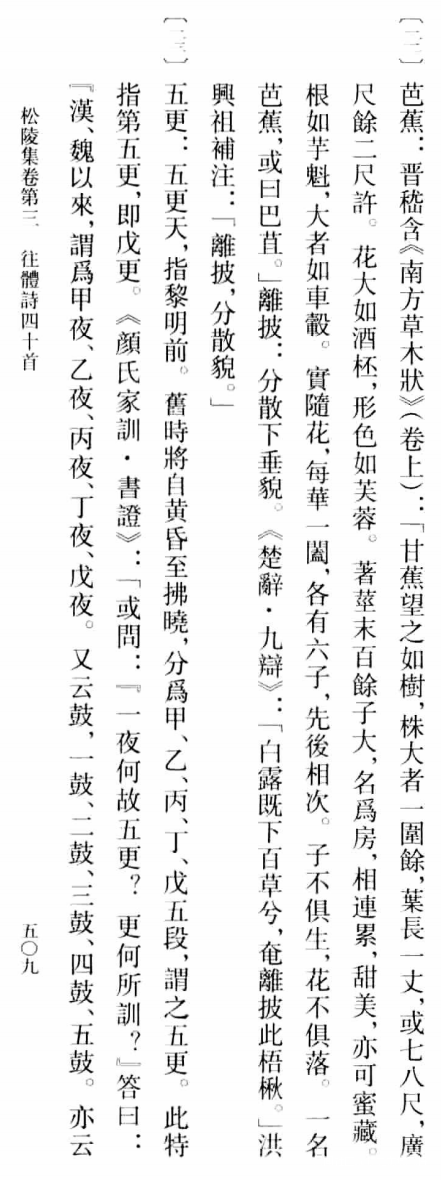 〔二二〕芭蕉：晋嵇含《南方草木狀》（卷上）：「甘蕉望之如樹，株大者一圍餘，葉長一丈，或七八尺，廣
尺餘二尺許。花大如酒柸，形色如芙蓉。著莖末百餘子大，名爲房，相連累，甜美，亦可蜜藏。
根如芋魁，大者如車轂。實隨花，每華一闔，各有六子，先後相次。子不俱生，花不俱落。一名
芭蕉，或曰巴苴。」離披：分散下垂貌。《楚辭·九辯》：「白露既下百草兮，奄離披此梧楸。」洪
興祖補注：「離披，分散貌。」
〔二三〕五更：五更天，指黎明前。舊時將自黄昏至拂曉，分爲甲、乙、丙、丁、戊五段，謂之五更。此特
指第五更，即戊更。《顏氏家訓·書證》：「或問：『一夜何故五更？更何所訓？』答曰：
『漢、魏以來，謂爲甲夜、乙夜、丙夜、丁夜、戊夜。又云鼓，一鼓、二鼓、三鼓、四鼓、五鼓。亦云
松陵集卷第三　往體詩四十首
五〇九